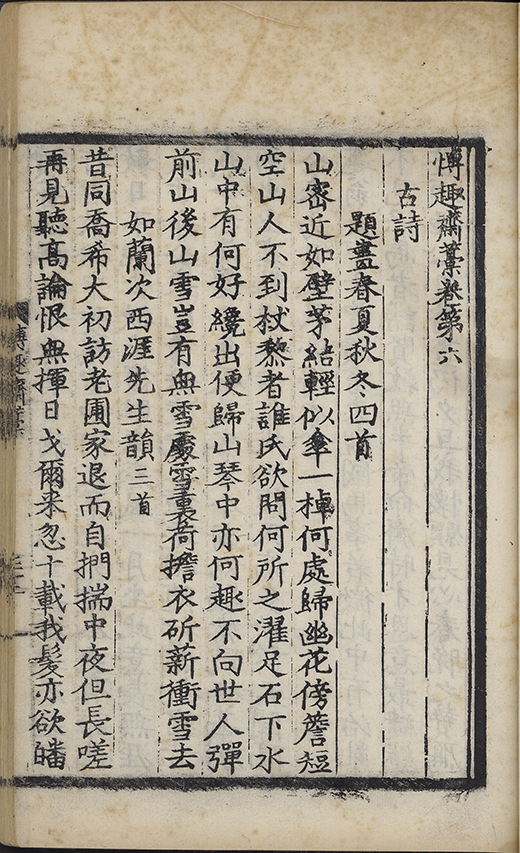 博趣齋藁卷第六
古詩
題畫春夏秋冬四首
山密近如壁茅結輕似傘一棹何處歸幽花傍簷短
空山人不到杖藜者誰氏欲問何所之濯足石下水
山中有何好纔出便歸山琴中亦何趣不向世人彈
前山後山雪豈有無雪處雪裏荷擔衣斫薪衝雪去
如蘭次西涯先生韻三首
昔同喬希大初訪老圃家退而自捫揣中夜但長嗟
再見聽高論恨無揮日戈爾來忽十載我髮亦欲皤
博趣齋藁